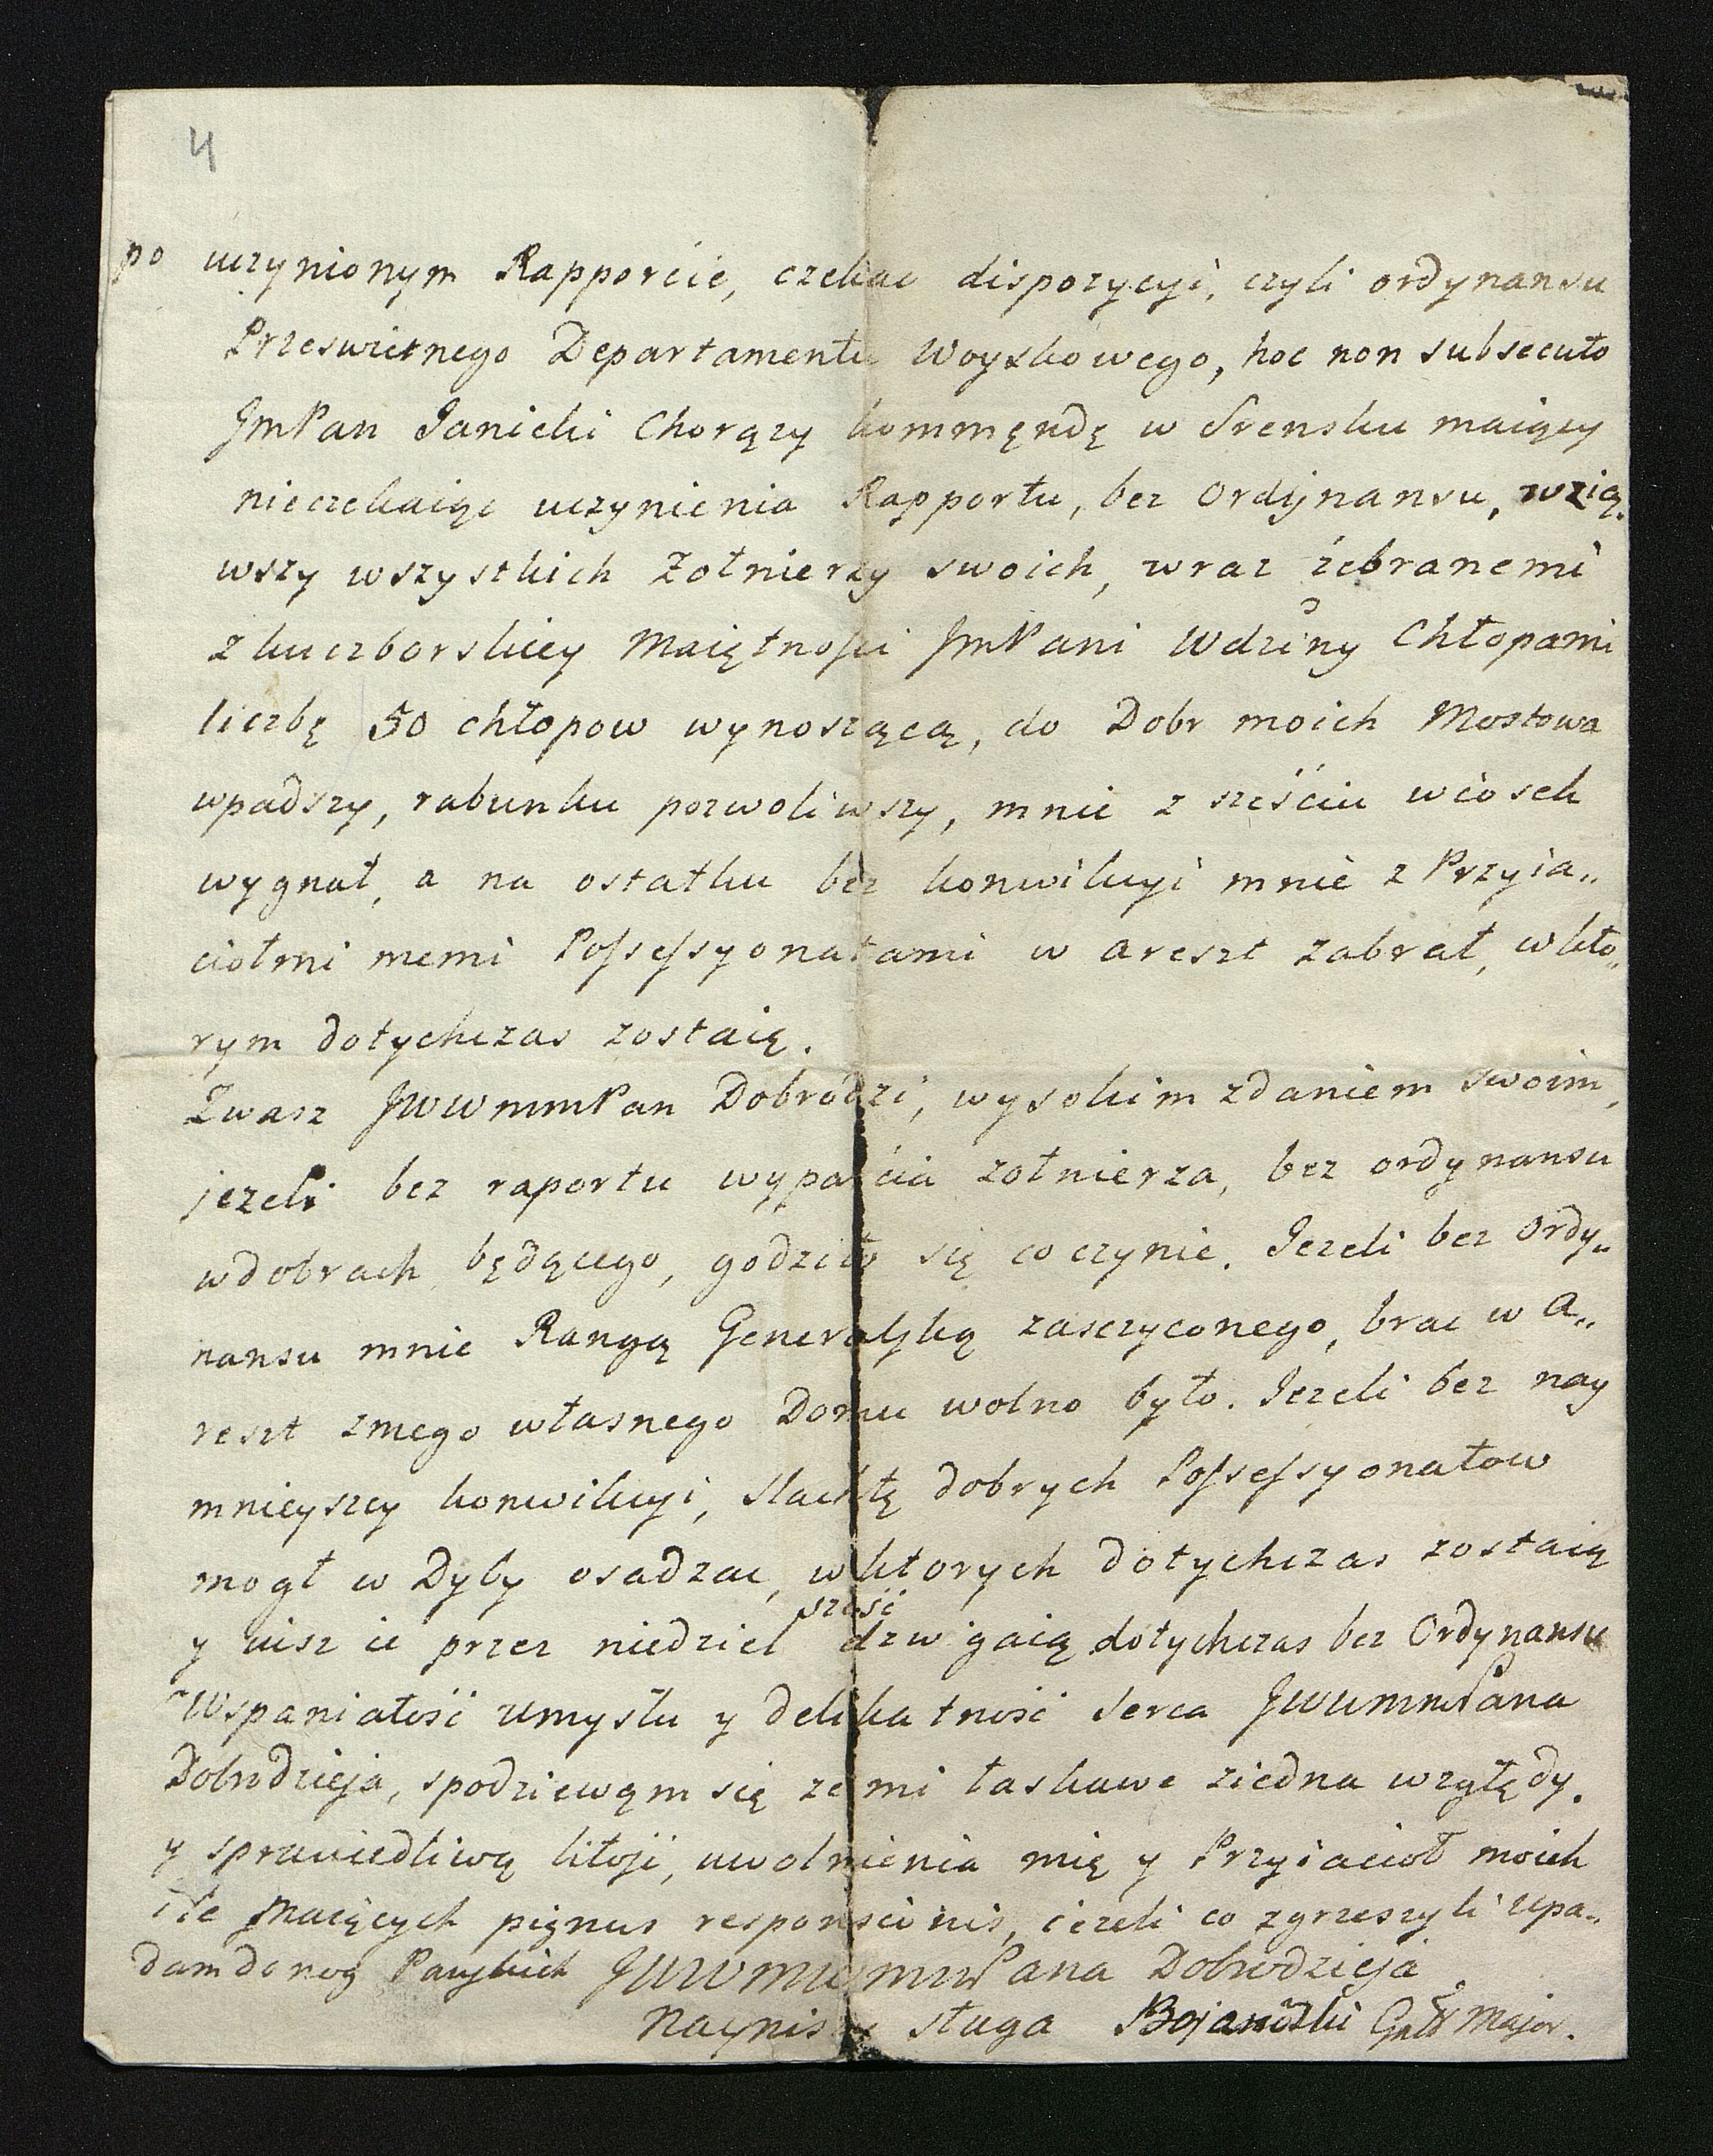 4
po uczynionym Rapporcie, czekac dispozycyi, czyli ordynansu
Przeswietnego Departamentu Woyskowego, hoc non subsecuto
JmPan Janicki Chorązy kommęndę w Srensku maiący
nieczekaiąc uczynienia Rapportu, bez Ordynansu, wzią„
wszy wszystkich Zołnierzy swoich, wraz zebranemi
z kuczborskiey Maiętnosci JmPani Wdziny Chłopami
liczbę 50 chłopow wynoszącą, do Dobr moich Mostowa
wpadszy, rabunku pozwoliwszy, mnie z sześciu wiosek
wygnał, a na ostatku bez konwikcyi mnie z Przyia„
ciołmi memi Possessyonatami w areszt zabrał, w kto„
rym dotychczas zostaię.
Zwasz JWWmmPan Dobrodzi, wysokim zdaniem swoim,
jezeli bez raportu wyparcia zołnierza, bez ordynansu
wdobrach będącego, godziło się co czynic. Jezeli bez Ordy„
nansu mnie Rangą Generalską zasczyconego, brac w A„
reszt zmego własnego Domu wolno było. Jezeli bez nay
mnieyszey konwikcyi, slachtę dobrych Possessyonatow
mogł w Dyby osadzac, wktorych dotychczas zostaią
y iusz ie przez niedziel sześć dzwigaią dotychczas bez Ordynansu
Wspaniałość umysłu y delikatność Serca JWWmmPana
Dobrodzieja, spodziewam się ze mi łaskawe ziedna względy.
y sprawiedliwą litość, uwolnienia mię y Przyiacioł moich
ile maiących pignus responsionis, iezeli co zgrzeszyli upa„
dam do nog Panskich JWWmmPana Dobrodzieja
Nayniszy sługa Bojanowski Gnłł Major.